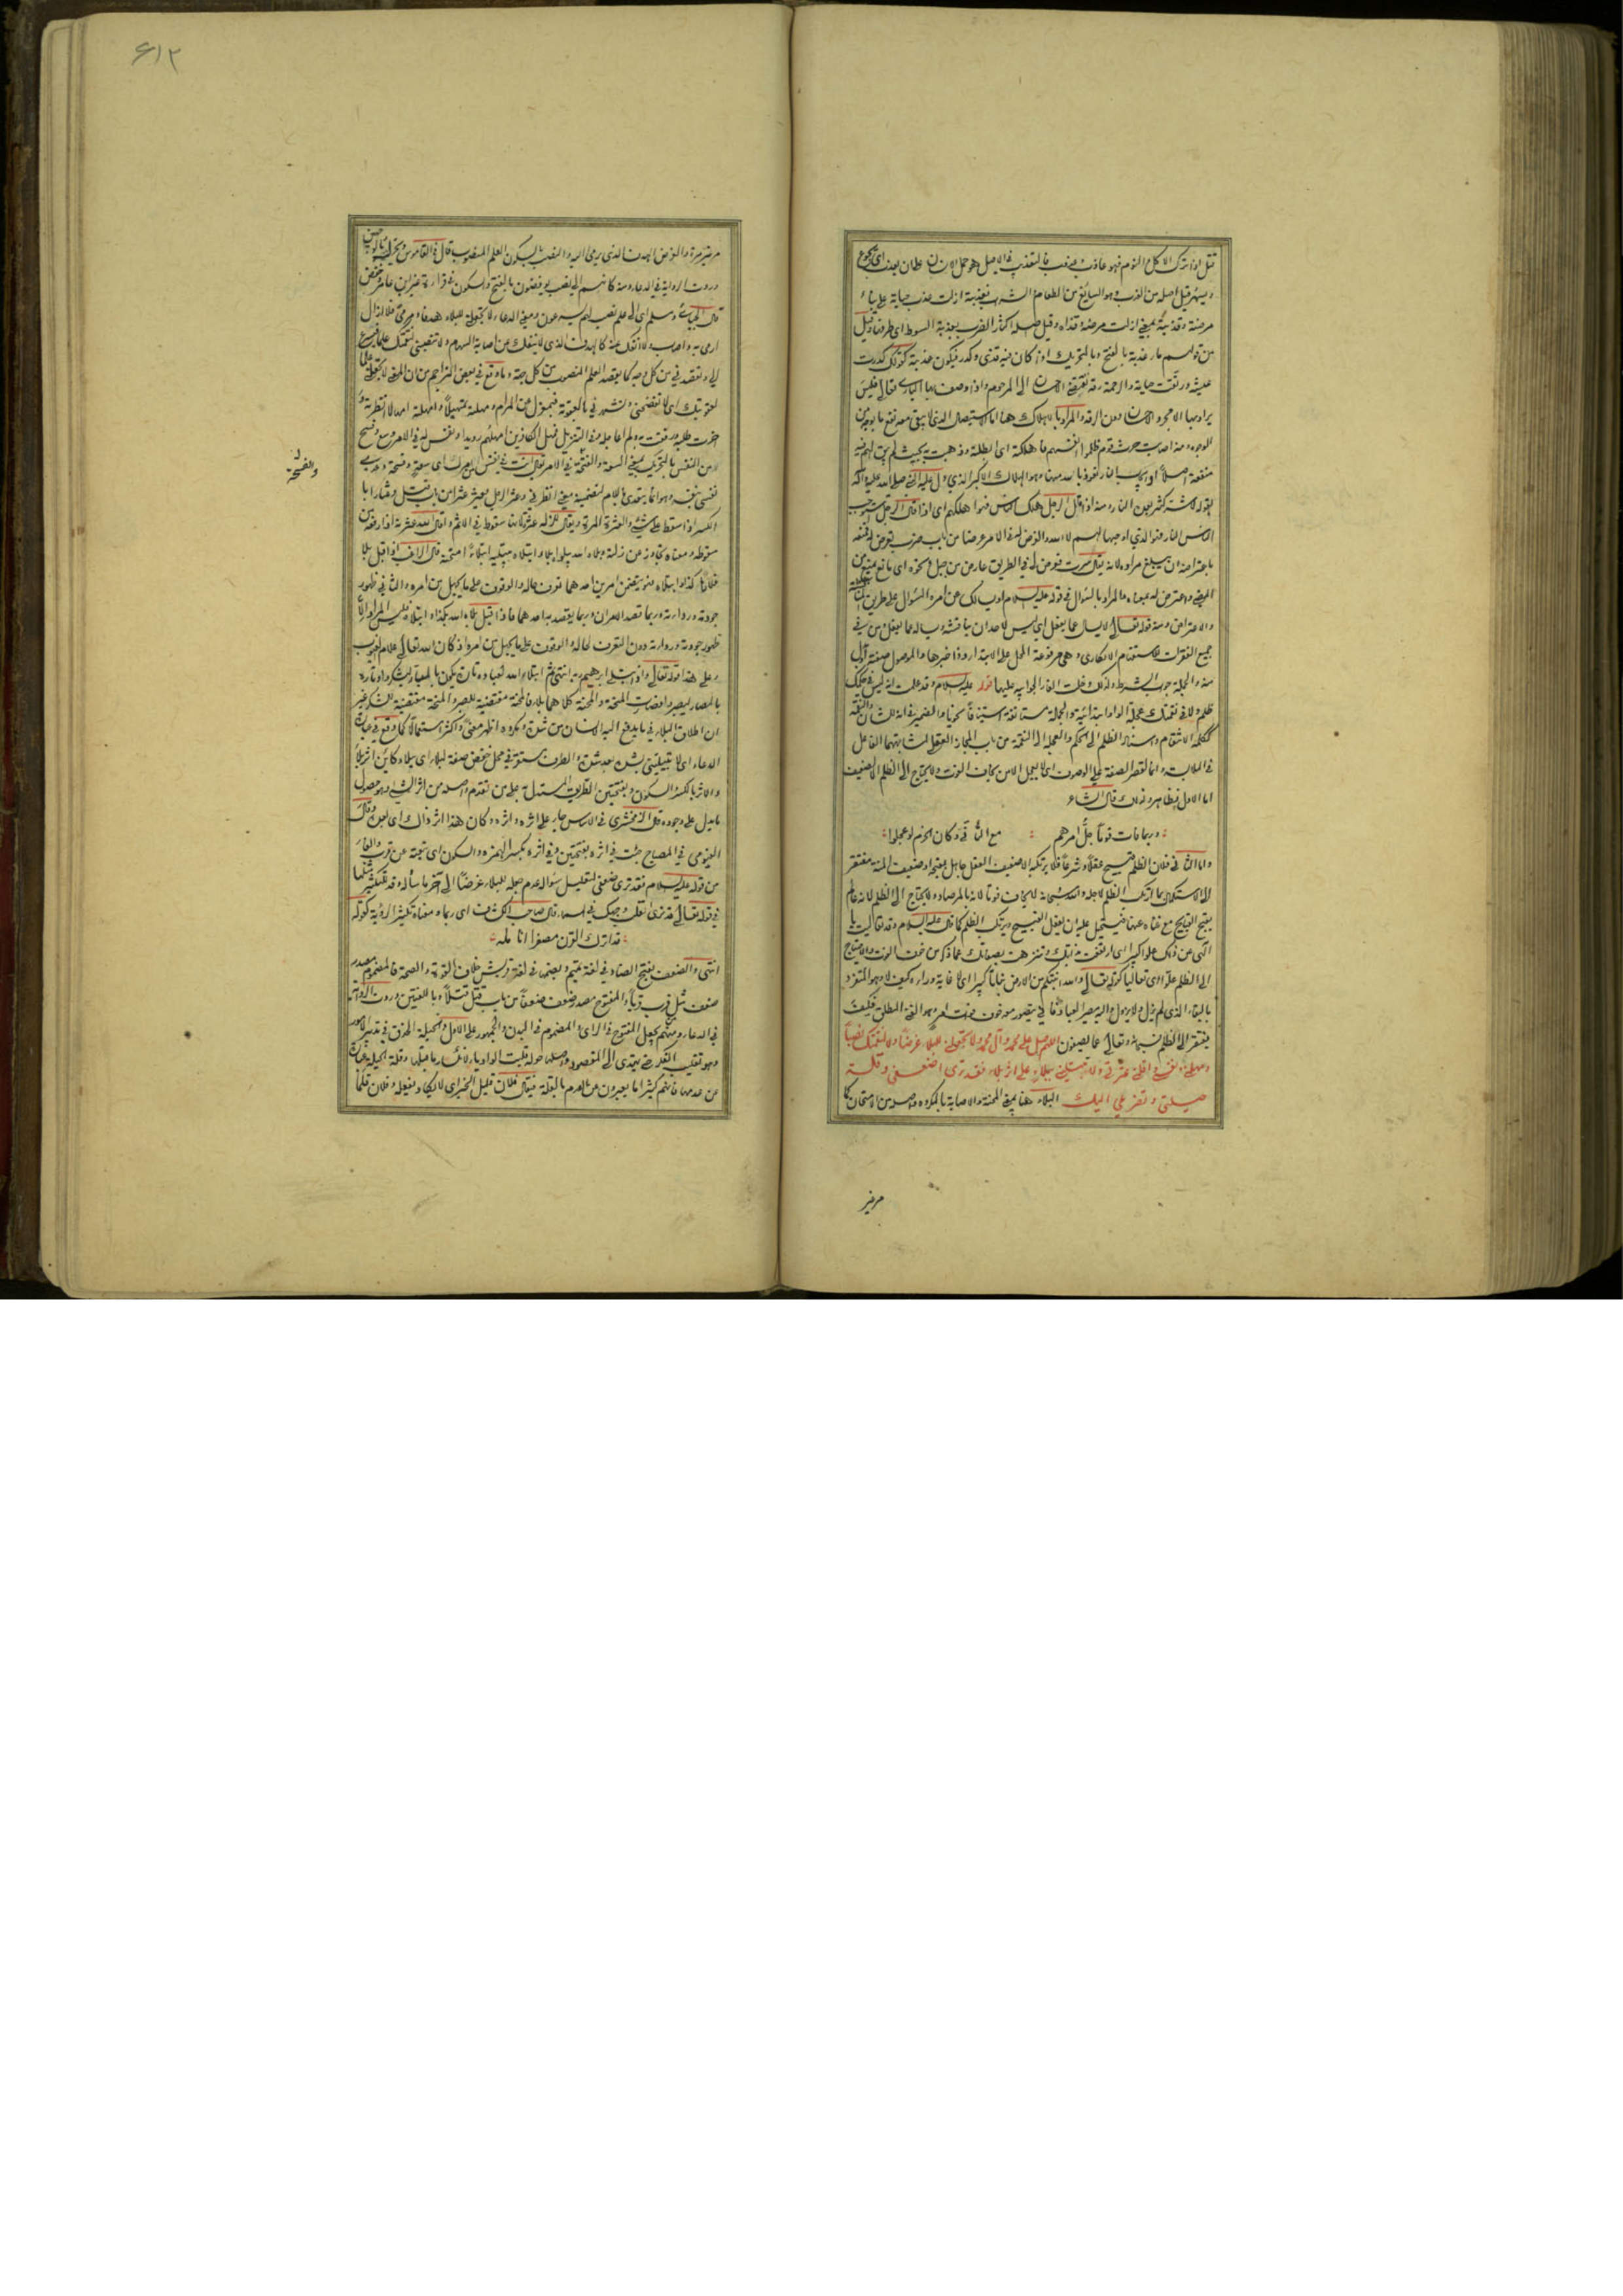 قتل اذا ترك الاكل والنوم فهو عاذب وعذوب فالتعذيب في الاصل هو حمل الانسان على ان يعذب اى يجوع
ويسهر وقيل اصله من العذب وهو السائغ من الطعام والشراب فعذبته ازلت عذب حياته على بناء
مرضته وقذيته بمعنى ازلت مرضه وقذاه وقيل اصله اكثار الضرب بعذبة السوط اى طرفها وقيل
من قولهم ماء عذبة بالفتح وبالتحريك اذا كان فيه قذى وكدر فيكون عذبته كقولك كدرت
عيشه ورنقت حياته والرحمة رقة تقتضي الاحسان الى المرحوم واذا وصف بها البارى تعالى فليس
يراد بها الا مجرد الاحسان دون الرقة والمراد بالاهلاك هنا اما الاستيصال الذي لا يبقى معه نفع ما بوجه من
الوجوه ومنه اصابت حرث قوم ظلموا انفسهم فاهلكته اى ابطلته وذهبت به بحيث لم يبق لهم فيه
منفعة اصلا او ايجاب النار نعوذ بالله منها وهو الهلاك الاكبر الذي دل عليه النبي صلى الله عليه وآله
بقوله لا شتركثير بعين النار ومنه اذا قال الرجل هلك الناس فهو اهلكهم اى اذا قال الرجل استوجب
الناس النار فهو الذي اوجبها لهم لا الله والعرض له في الامر عرضا من باب ضرب تعرض له فمنعه
باعتراضه ان يبلغ مراده لانه يقال سرت فعرض لي في الطريق عارض من جبل ونحوه اى مانع يمنع من
المضي واعترض لي بمعناه والمراد بالسؤال في قوله عليه السلام او يسالك عن امره السؤال على طريق المحاسبة
والاعتراض ومنه قوله تعالى لا يسال عما يفعل اى ليس لاحد ان يناقشه ويساله عما يفعل ومن في
جميع الفقرات للاستفهام الانكارى وهي مرفوعة المحل على الابتداء وذا خبرها والموصول صفة او بدل
منه والجملة جواب الشرط ولذلك دخلت الفاء الجوابية عليها قوله عليه السلام وقد علمت انه ليس في حكمك
ظلم ولا في نقمتك عجلة الواو ابتدائية والجملة مستانفة استينافا نحويا والضمير في انه للشان والنقمة
ككلمة الانتقام واسناد الظلم الى الحكم والعجلة الى النقمة من باب المجاز العقلي لمشابهتهما الفاعل
في الملابسة وانما قصر الصفة على الموصوف اى لا يعجل الا من يخاف الفوت ولا يحتاج الى الظلم الا الضعيف
اما الاول فظاهر وذلك قال الشاعر
وربما فات قوما جل امرهم مع التانى وكان الحزم لو عجلوا
واما الثانى فلان الظلم قبيح عقلا وشرعا فلا يرتكبه الا ضعيف العقل جاهل بقبحه او ضعيف المنة مفتقر
الى الاستكمال بما ارتكب الظلم لاجله والله سبحانه لا يخاف فوتا لانه بالمرصاد ولا يحتاج الى الظلم لانه عالم
بقبح القبايح مع غناه عنها فيستحيل عليه ان يفعل القبيح ويرتكب الظلم كما قال عليه السلام وقد تعاليت يا
الهى عن ذلك علوا كبيرا اى ارتفعت بذاتك وتنزهت بصفاتك عما ذكر من خوف الفوت والاحتياج
الى الظلم علوا اى تعاليا كقوله تعالى والله انبتكم من الارض نباتا كبيرا اى لا غاية وراءه وكيف لا وهو المتفرد
بالبقاء الذى لم يزل ولا يزول واليه مصير العباد فانى يتصور معه خوف فوت امر وهو الغنى المطلق فكيف
يفتقر الى الظلم سبحانه وتعالى عما يصفون اللهم صل على محمد وآل محمد ولا تجعلنى للبلاء غرضا ولا لنقمتك نصبا
ومهلنى ونفسنى واقلنى عثرتى ولا تبتلينى ببلاء على اثر بلاء فقد ترى ضعفى وقلة
حيلتى وتضرعى اليك البلاء هنا بمعنى المحنة والاصابة بالمكروه واصله من الامتحان كما
مر غير
۶۱۲
مر غير مرة والغرض الهدف الذى يرمى اليه والنصب بسكون العلم المنصوب قال فى القاموس ويحرك وبالوجهين
وردت الرواية فى الدعاء ومنه كانهم الى نصب يوفضون بالفتح والسكون فى قراءة غير ابن عامر وحفص
ارمى به واصاب ولا انفك عنه كالهدف الذى لا ينفك عن اصابة السهم ولا تنصبنى لنقمتك علما فتسرع
الى وتقصد فى من كل وجه كما يقصد العلم المنصوب من كل جهة وما وقع فى بعض التراجم من ان المعنى لا تجعلنى علما
لعقوبتك اى لا تفضحنى ولا تشهرنى بالعقوبة فبمعزل عن المرام ومهلته تمهيلا وامهلته امهالا انظرته و
اخرت طلبه ورفقت به ولم اعاجله وفى التنزيل فمهل الكافرين امهلهم رويدا ونفس له فى الامر وسع وفسح
والفسحة
من النفس بالتحريك بمعنى السعة والفسحة فى الامر يقال انت فى نفس من امرك اى سعة وفسحة
الكسر اذا سقط على شيء والعثرة المرة ويقال للزلة عثرة لانها سقوط فى الاثم واقال الله عثرته اذا رفعه من
سقوطه ومعناه تجاوز عن زلته وبلاه الله يبلوه بلاء وابتلاه يبتليه ابتلاء امتحنه قال الراغب اذا قيل بلا
فلان كذا وابتلاه فهو يتضمن امرين احدهما تعرف حاله والوقوف على ما يجهل من امره والثانى ظهور
جودته ورداءته وربما قصد الامران وربما يقصد به احدهما فاذا قيل بلاه الله بكذا وابتلاه فليس المراد الا
ظهور جودته ورداءته دون التعرف لحاله والوقوف على ما يجهل من امره اذ كان الله تعالى علام الغيوب
وعلى هذا قوله تعالى واذ ابتلى ابراهيم ربه انتهى ثم ابتلاء الله لعباده تارة يكون بالمسار ليشكروا وتارة
بالمضار ليصبروا فصارت المنحة والمحنة كلاهما بلاء فالمحنة مقتضية للصبر والمنحة مقتضية للشكر غير
ان اطلاق البلاء فى ما يدفع اليه الانسان من شدة ومكروه اظهر معنى واكثر استعمالا كما وقع فى عبارة
الدعاء اى لا تبتلينى بشدة بعد شدة والظرف مستقر فى محل خفض صفة لبلاء اى ببلاء كائن اثر بلاء
والاثر بالكسر والسكون وبفتحتين الطريق المستدل به على من تقدم واصله من اثر الشيء وهو حصول
ما يدل على وجوده قال الزمخشرى فى الاساس جاء على اثره واثره وكان هذا اثر ذاك اى بعده وقال
الفيومى فى المصباح جئت فى اثره بفتحتين وفى اثره بكسر الهمزة والسكون اى تبعته عن قرب والفاء
من قوله عليه السلام فقد ترى ضعفى لتعليل سؤاله عدم جعله للبلاء غرضا الى آخر ما ساله وقد للتكثير مثلها
فى قوله تعالى قد نرى تقلب وجهك فى السماء قال صاحب الكشاف اى ربما ومعناه تكثير الرؤية كقوله
قد اترك القرن مصفرا انامله
انتهى والضعف بفتح الضاد فى لغة تميم وبضمها فى لغة قريش خلاف القوة والصحة فالمضموم مصدر
ضعف مثل قرب قربا والمفتوح مصدر ضعف ضعفا من باب قتل قتلا وباللغتين وردت الرواية
فى الدعاء ومنهم من يجعل المفتوح فى الراى والمضموم فى البدن والجمهور على الاول والحيلة الحذق فى تدبير الامور
وهو تقليب الفكر حتى يهتدى الى المقصود واصلها حولة قلبت الواو ياء لانكسار ما قبلها وقلة الحيلة عبارة
عن عدمها فانهم كثيرا ما يعبرون عن العدم بالقلة فيقال فلان قليل الخير اى لا يكاد يفعله وفلان قلما